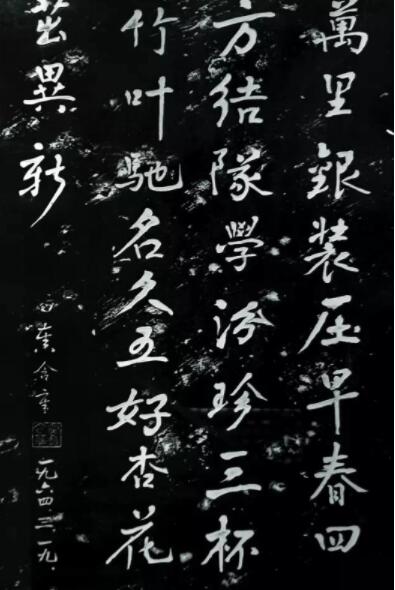 萬里銀装压早春四
方结隊學汾珍三杯
竹叶馳名久五好杏花
茁異新
一九六四.三.一九.